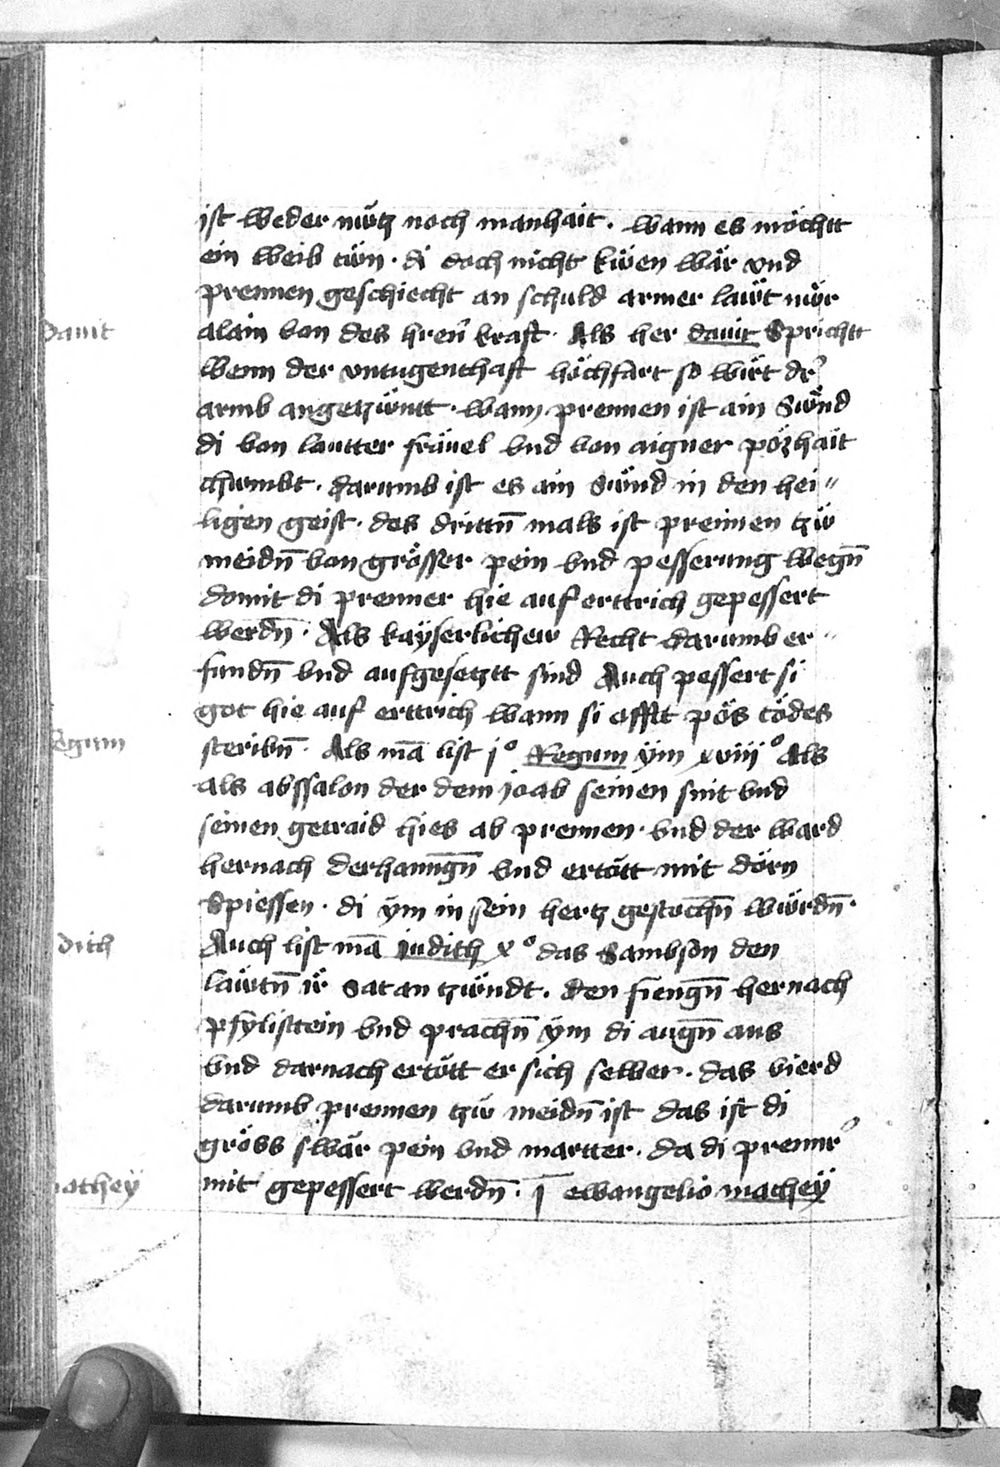 ist weder nücz noch manhait. wann es möchtt
ein weib tün. di doch nicht küen wär vnd
prennen geschiecht an schuld armer lawt nwr
alain von des hren kraft. Als her dauit Sprichtt
wenn der vntugenthaft höchfart so wirt dr
armb angeczüntt. wann prennen ist ain Sünd
di von lautter fräuel vnd von aigner pözhait
chumbt. darumb ist es ain Sünd in den hei〃
ligen geist. des drittn̄ mals ist prennen czü
meidn̄ von grösser pein vnd pesserung wegn̄
domit di prenner hie auf ertrich gepessert
werdn̄. Als kayserlichew Recht darumb er〃
fundn̄ vnd aufgeseztt sind Auch pessert si
got hie auf erttrich wann si offtt pös tödes
steribn̄. Als mā list jº Regum ym xviijº Als
als abssalon der dem joab seinen snit vnd
seinen getraid hies ab prennen. vnd der ward
hernach derhanngn̄ vnd ertött mit dörn
Spiessen. di ym in sein hertz gestochn̄ würdn̄.
Auch list mā iudith xº das Sambson den
lawtn̄ ir̈ Sat an czündt. den fiengn̄ hernach
pfylistein vnd prachn̄ ym di augn̄ aus
vnd darnach ertött er sich selber. das vierd
darumb prennen czü meidn̄ ist das ist di
gröss swär pein vnd martter. da di prennr
mit gepessert werdn̄. j̄ ewangelio mathey
dauit
Regum
dith
mathey